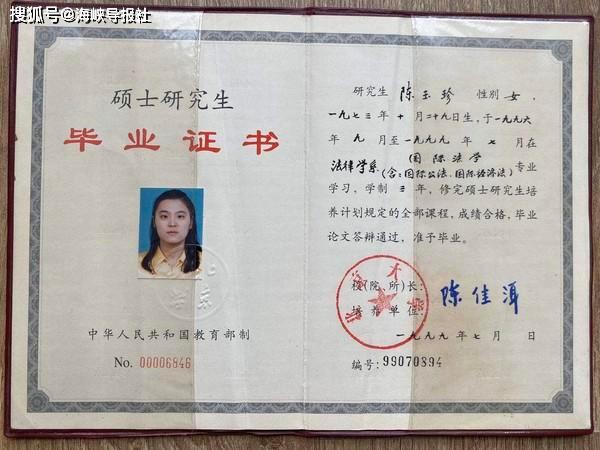 搜狐号@海峡导报社
硕士研究生
毕业证书
中华人民共和国教育部制
No. 00006846
研究生 陈玉珍 性别 女，
一九七三年十月二十九日生，于一九九六
年九月至一九九九年七月在
法律学系 (国际法学
(含：国际公法、国际经济法) 专业
学习，学制三年，修完硕士研究生培
养计划规定的全部课程，成绩合格，毕业
论文答辩通过，准予毕业。
校(院、所)长： 陈佳洱
培养单位：
一九九九年七月 日
编号：99070894